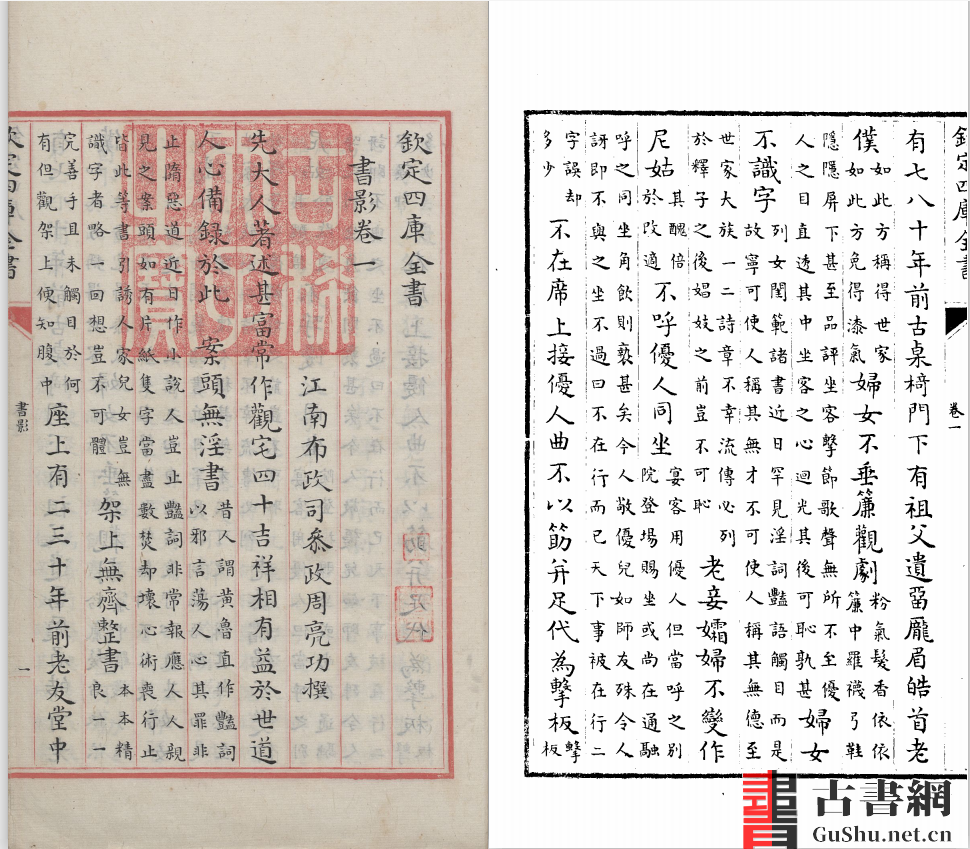 欽定四庫全書
書影卷一
江南布政司叅政周亮功撰
先大人著述甚富常作觀宅四十吉祥相有益於世道
人心備錄於此 案頭無淫書 昔人謂黃魯直作豔詞
以邪言蕩人心其罪非
止墮惡道近日作小說人豈止豔詞非常報應人人親
見之案頭如有片紙隻字當盡數焚却壞心術喪行止
皆此等書引誘人家兒女豈無
識字者略一回想豈不可體
架上無齊整書 本本精
良一一
完善手且未觸目於何
有但觀架上便知腹中
座上有二三十年前老友堂中
欽定四庫全書
書影
一
欽定四庫全書
卷一
有七八十年前古桌椅門下有祖父遺畱龐眉皓首老
僕 如此方稱得世家
如此方免得漆氣
婦女不垂簾觀劇 粉氣髮香依依
簾中羅襪弓鞋
隱隱屏下甚至品評坐客擊節歌聲無所不至優
人之目直透其中坐客之心迴光其後可恥孰甚
婦女
不識字 列女閨範諸書近日罕見淫詞豔語觸目而是
故寧可使人稱其無才不可使人稱其無德至
世家大族一二詩章不幸流傳必列
於釋子之後娼妓之前豈不可恥
老妾孀婦不變作
尼姑 其醜倍
於改適
不呼優人同坐 宴客用優人但當呼之別
院登場賜坐或尚在通融
呼之同坐角飲則褻甚矣今人敬優兒如師友殊令人
訝即不與之坐不過曰不在行而已天下事被在行二
字誤却
多少
不在席上接優人曲不以筯并足代為擊板 擊
板
古書網
GuShu.net.cn